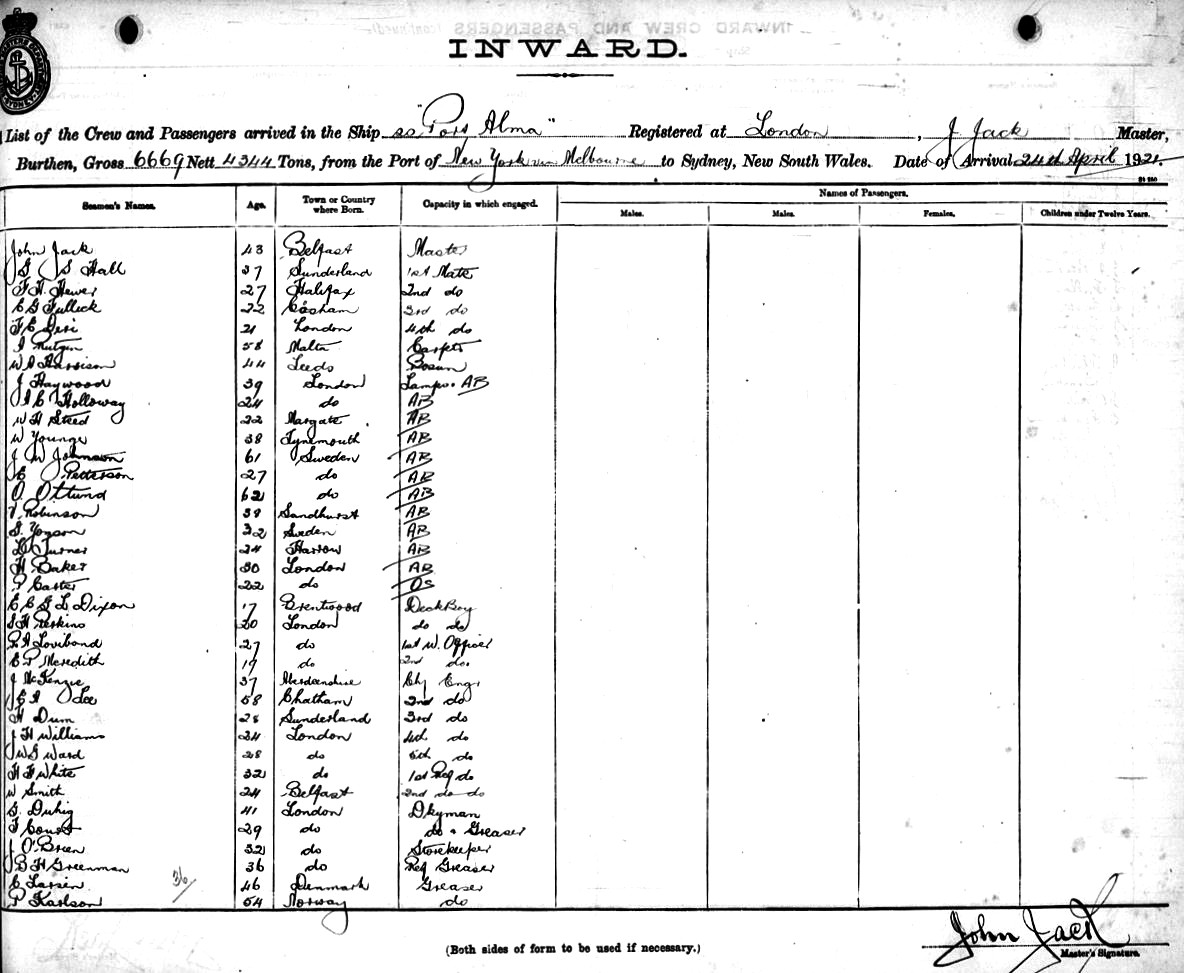 INWARD.
List of the Crew and Passengers arrived in the Ship ss "Port Alma" Registered at London, J Jack Master,
Burthen, Gross 6669 Nett 4344 Tons, from the Port of New York via Melbourne to Sydney, New South Wales. Date of Arrival 24th April 1921.
Names of Passengers.
Seamen's Names. Age. Town or Country where Born. Capacity in which engaged. Males. Males. Females. Children under Twelve Years.
John Jack 43 Belfast Master
G S Hall 37 Sunderland 1st Mate
F. H. Hewer 27 Halifax 2nd do
C G Fullick 22 Cosham 3rd do
F C 21 London 4th do
58 Malta Carptr
W A Harrison 44 Leeds Bosun
J Haywood 39 London Lamps. AB
A C Holloway 24 do AB
W H Steed 22 Margate AB
W Younge 38 Tynemouth AB
J W Johnson 61 Sweden AB
C Petterson 27 do AB
O. Ostlund 62 do AB
V. Robinson 39 Sandhurst AB
32 Sweden AB
Turner 24 Harrow AB
H Baker 30 London AB
P Carter 22 do OS
C C G L Dixon 17 Brentwood Deck Boy
S H Perkins 20 London do do
R A Loviband 27 do 1st W. Officer
C P Meredith 19 do 2nd do.
J McKenzie 37 Aberdeenshire Chf Engr
C A Lee 58 Chatham 2nd do
H Dum 28 Sunderland 3rd do
J H Williams 24 London 4th do
W G Ward 28 do 5th do
H F White 32 do 1st Ref do
W Smith 24 Belfast 2nd do do
G. Duhig 41 London Dkyman
F Court 29 do do & Greaser
J O'Brien 32 do Storekeeper
B H Greenman 36 do Ref Greaser
C Larsen 46 Denmark Greaser
36/
P Karlson 54 Norway do
(Both sides of form to be used if necessary.)
John Jack
Master's Signature.